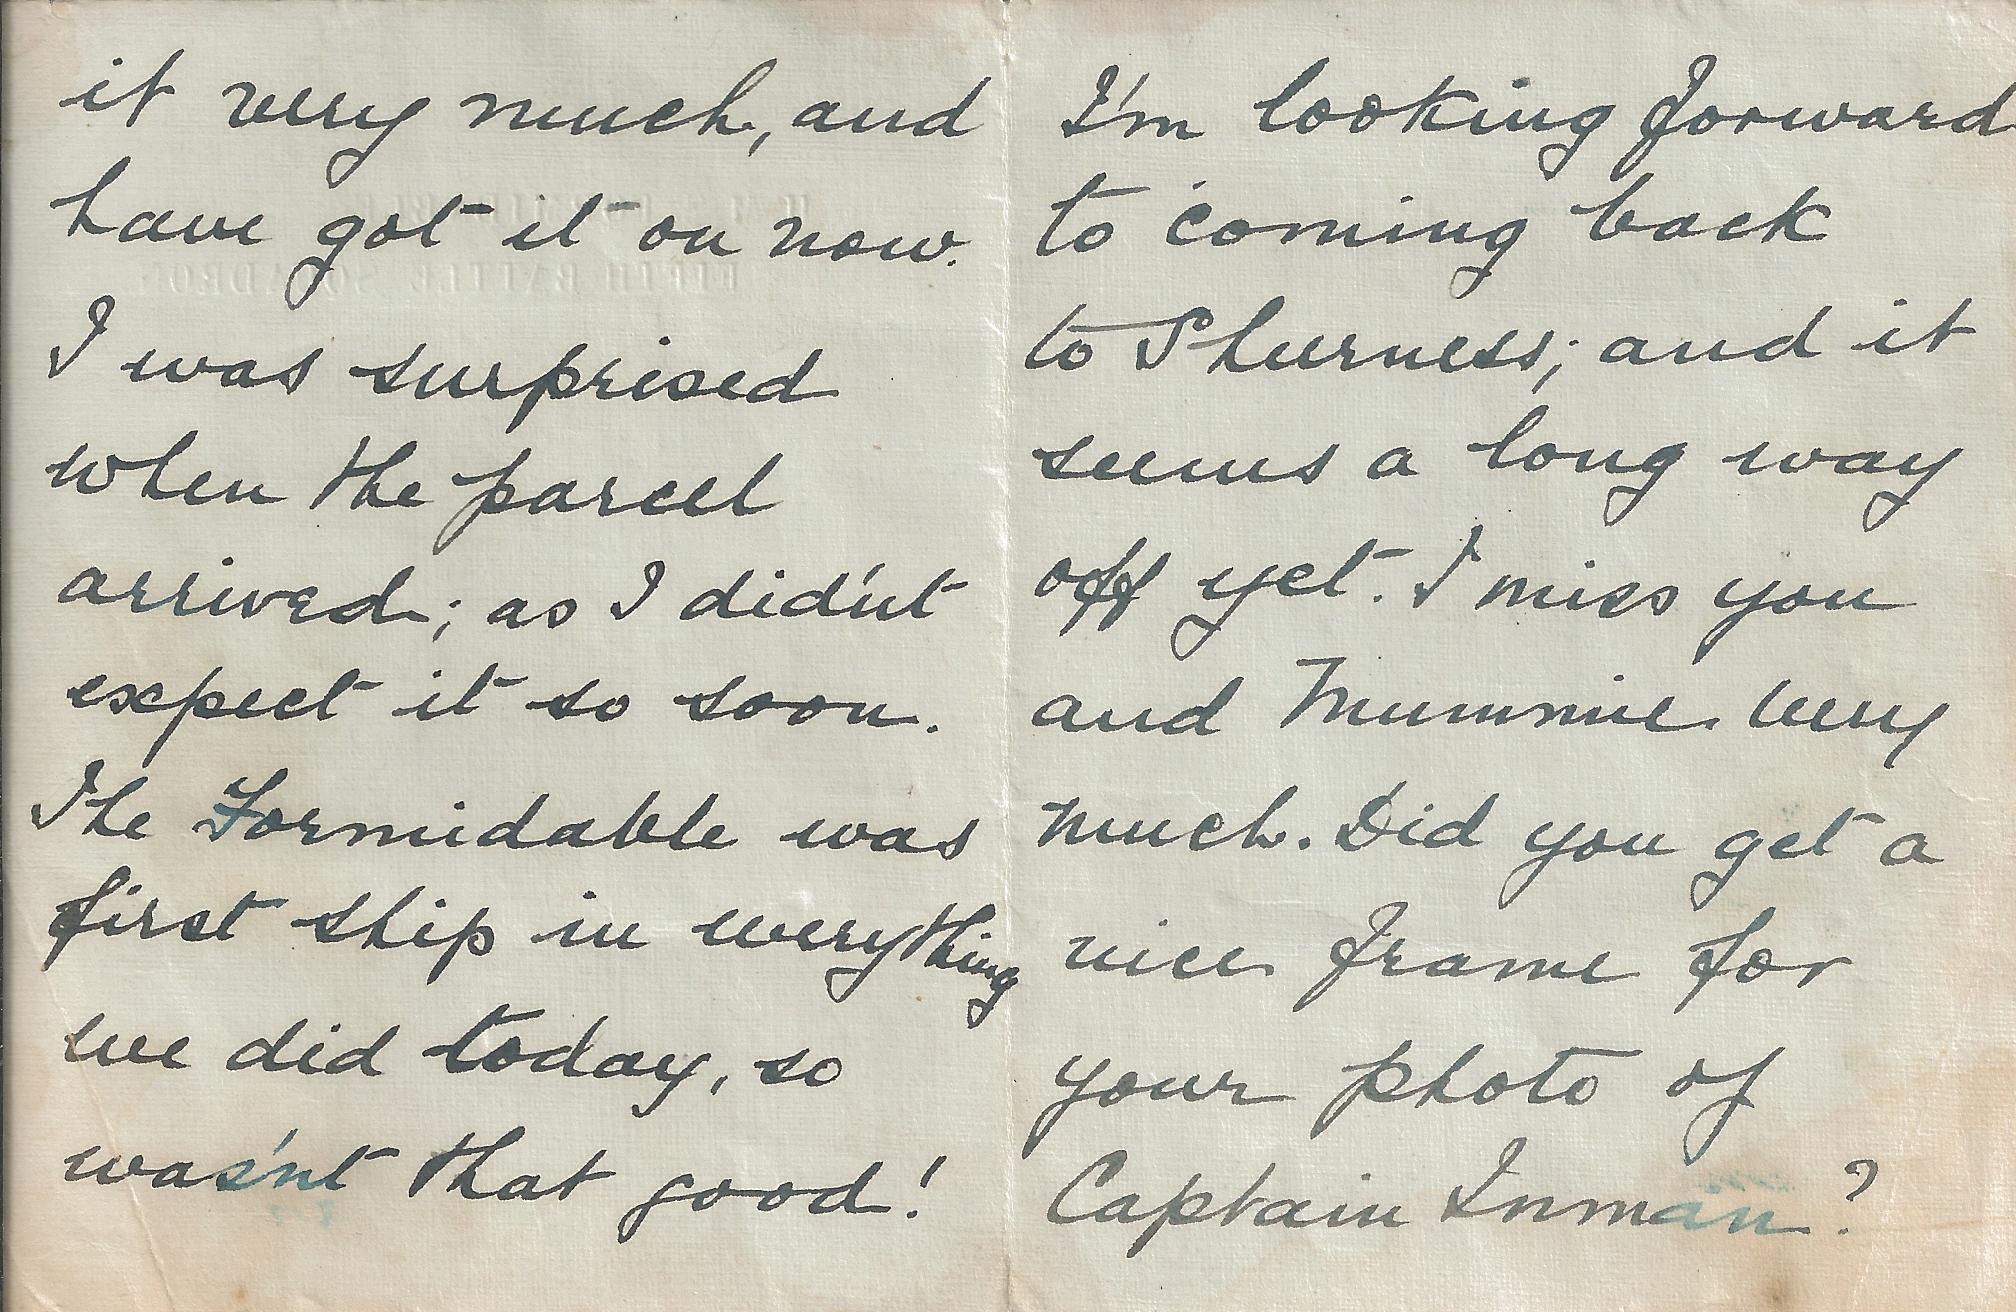 it very much, and
have got it on now.
I was surprised
when the parcel
arrived; as I did'nt
expect it so soon.
The Formidable was
first ship in everything
we did today, so
was'nt that good!
I'm looking forward
to coming back
to Sheerness; and it
seems a long way
off yet. I miss you
and Mummie very
much. Did you get a
nice frame for
your photo of
Captain Inman?